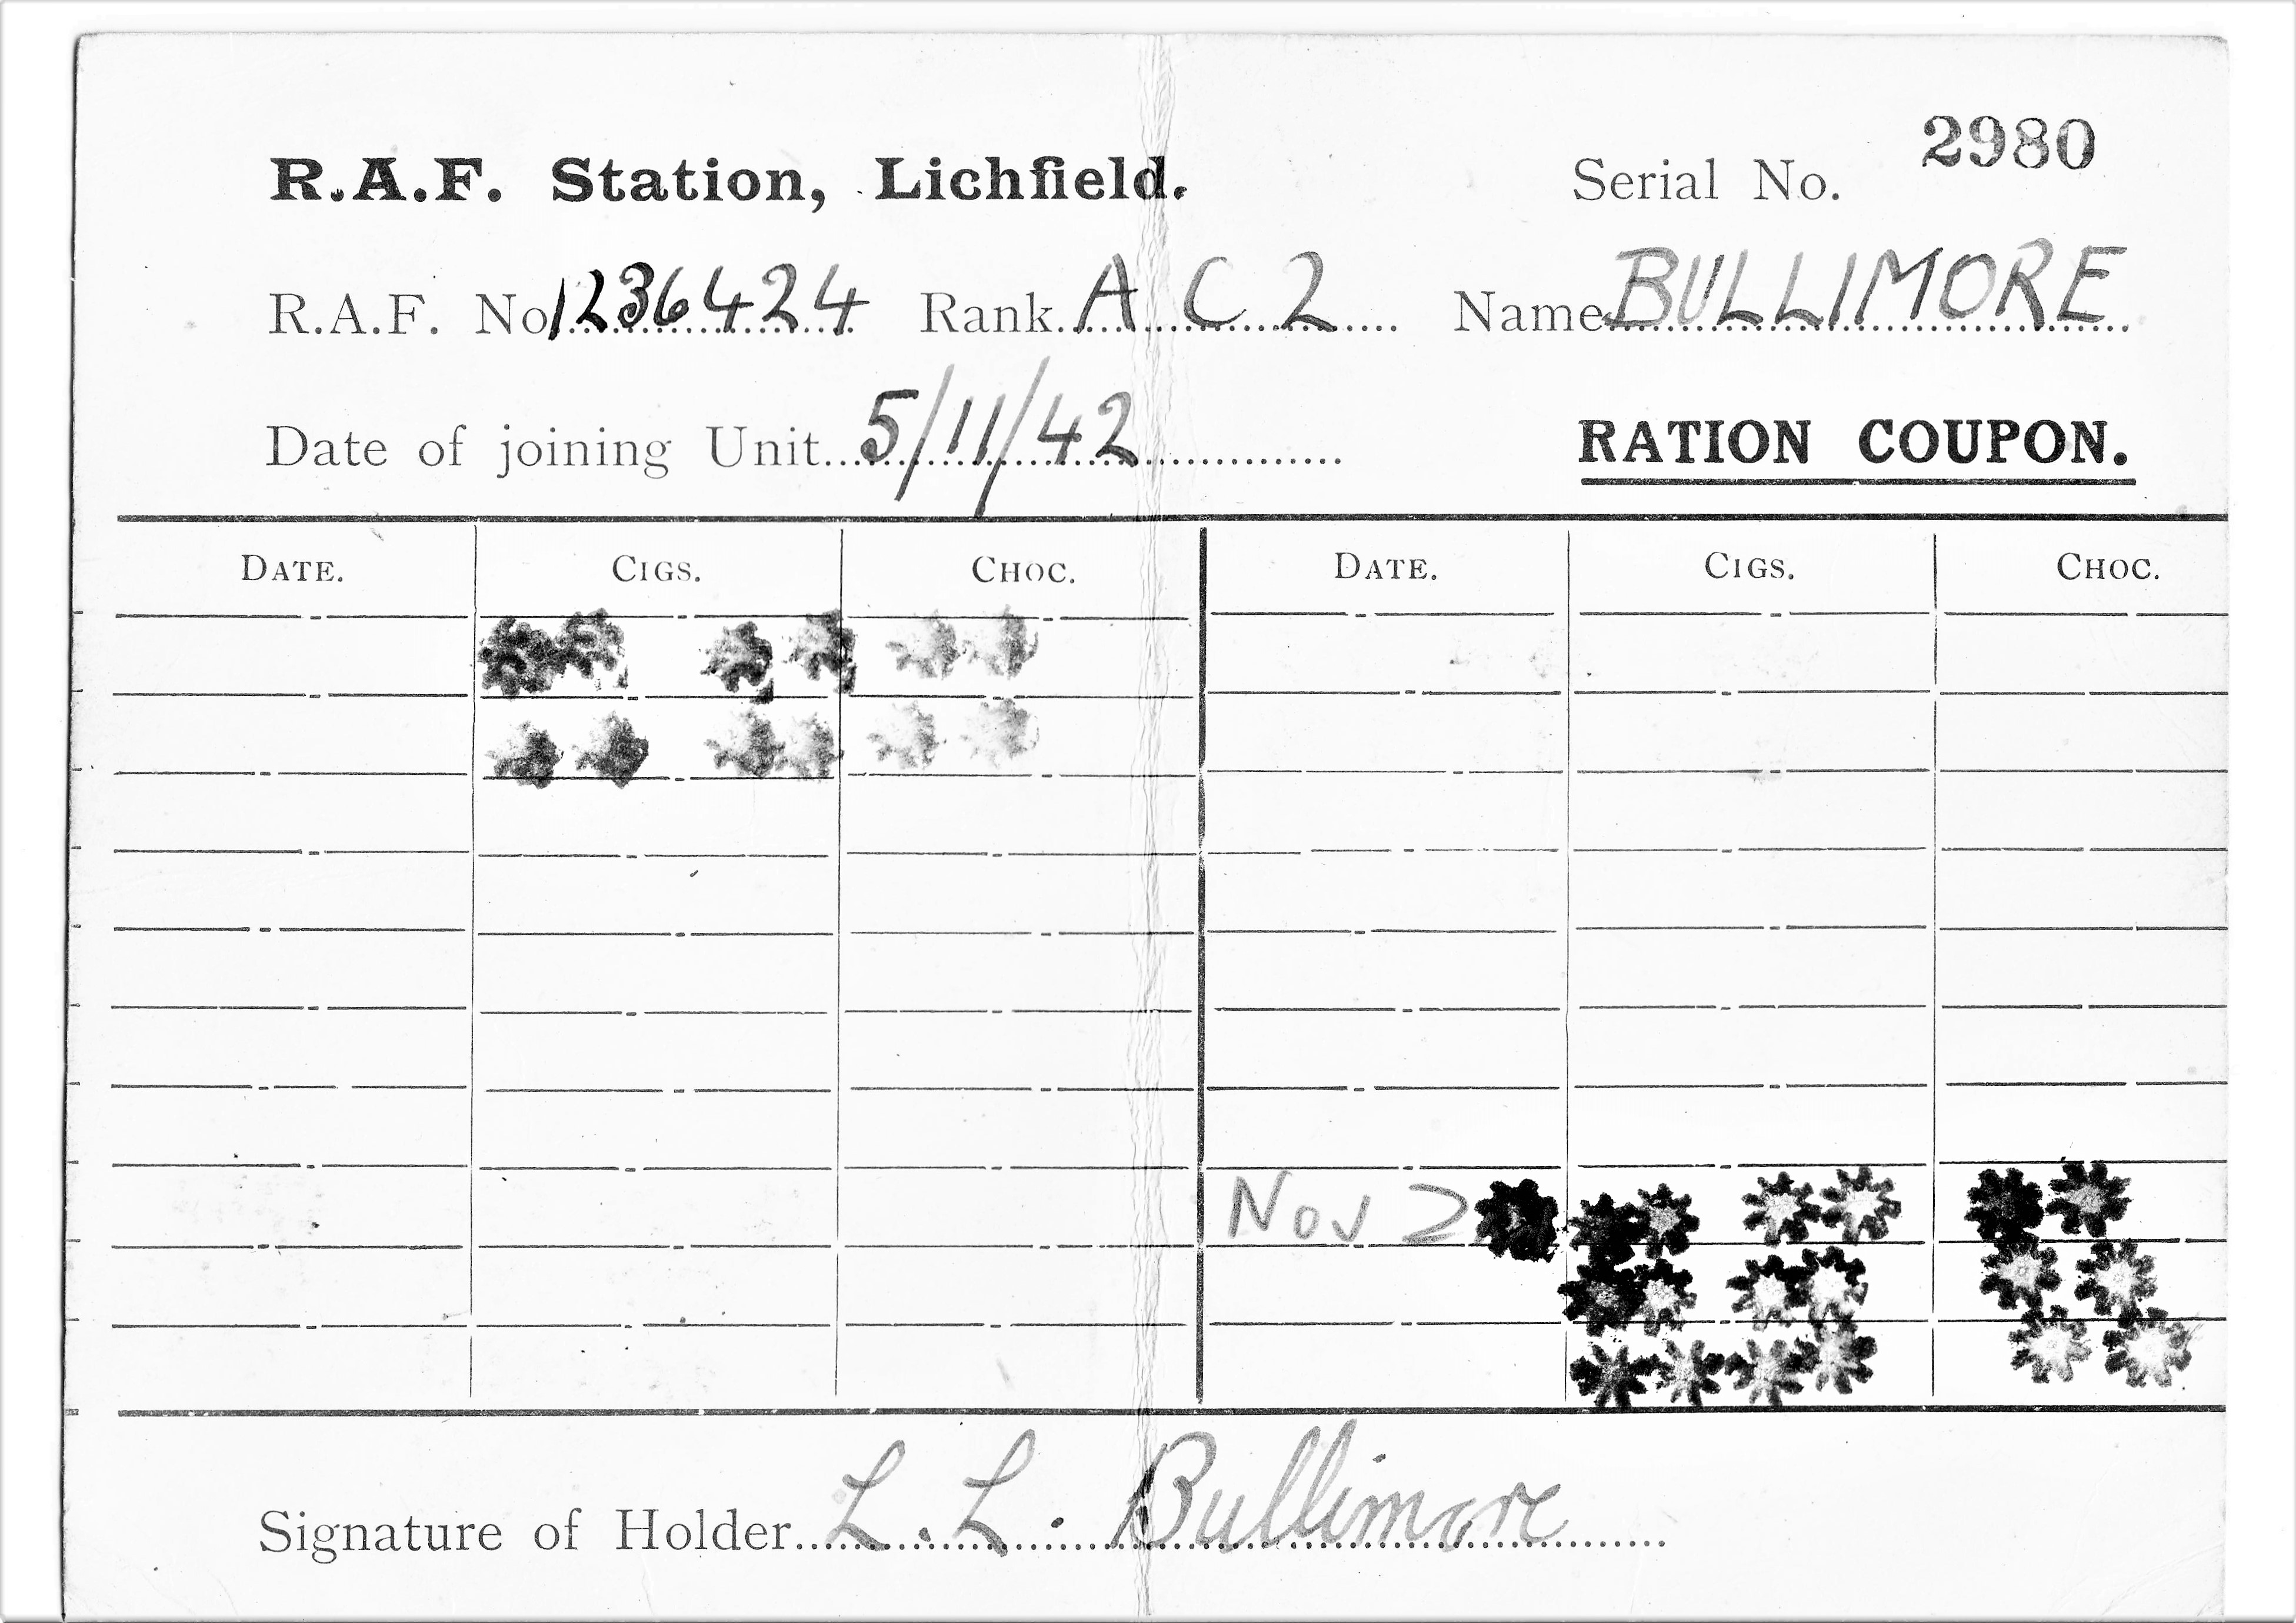 2980
R.A.F. Station, Lichfield. Serial No.
R.A.F. No. 1236424 Rank A C 2 Name BULLIMORE
Date of joining Unit 5/11/42 RATION COUPON.
DATE. CIGS. CHOC. DATE. CIGS. CHOC.
Nov 2
Signature of Holder L. L. Bullimore